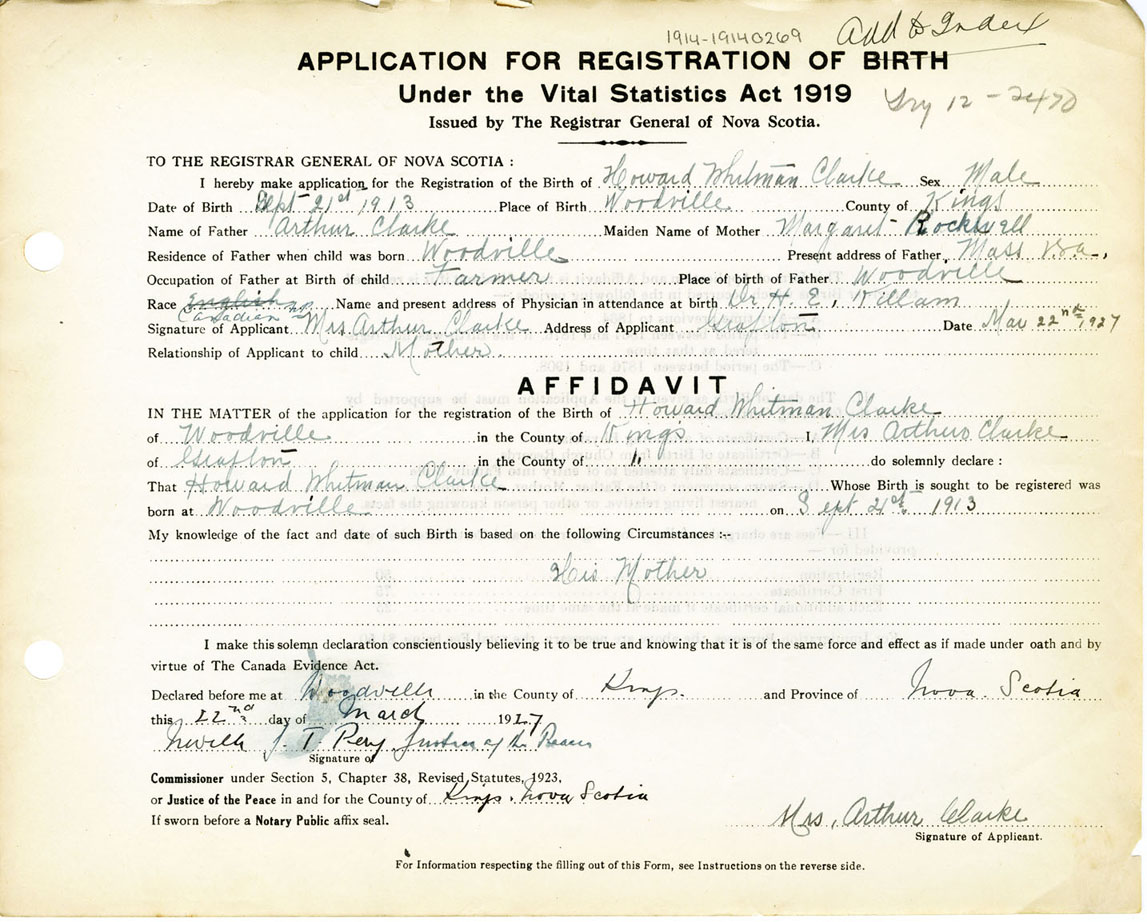 1914-19140269 Add to Index
APPLICATION FOR REGISTRATION OF BIRTH
Under the Vital Statistics Act 1919
12-2470
Issued by The Registrar General of Nova Scotia.
TO THE REGISTRAR GENERAL OF NOVA SCOTIA :
I hereby make application for the Registration of the Birth of Howard Whitman Clarke Sex Male
Date of Birth Sept 21st 1913 Place of Birth Woodville County of Kings
Name of Father Arthur Clarke Maiden Name of Mother Margaret Rockwell
Residence of Father when child was born Woodville Present address of Father Mass
Occupation of Father at Birth of child Farmer Place of birth of Father Woodville
Race English Name and present address of Physician in attendance at birth Dr H. E. Killam
Canadian
Signature of Applicant Mrs Arthur Clarke Address of Applicant Grafton Date Mar 22nd 1927
Relationship of Applicant to child Mother
AFFIDAVIT
IN THE MATTER of the application for the registration of the Birth of Howard Whitman Clarke
of Woodville in the County of Kings I, Mrs Arthur Clarke
of Grafton in the County of " do solemnly declare :
That Howard Whitman Clarke Whose Birth is sought to be registered was
born at Woodville on Sept 21st 1913
My knowledge of the fact and date of such Birth is based on the following Circumstances :--
His Mother
I make this solemn declaration conscientiously believing it to be true and knowing that it is of the same force and effect as if made under oath and by
virtue of The Canada Evidence Act.
Declared before me at Woodville in the County of Kings. and Province of Nova Scotia
this 22nd day of March 1927
J. T Justice of the Peace
Signature of
Commissioner under Section 5, Chapter 38, Revised Statutes, 1923,
or Justice of the Peace in and for the County of Kings, Nova Scotia
If sworn before a Notary Public affix seal.
Mrs, Arthur Clarke
Signature of Applicant.
For Information respecting the filling out of this Form, see Instructions on the reverse side.